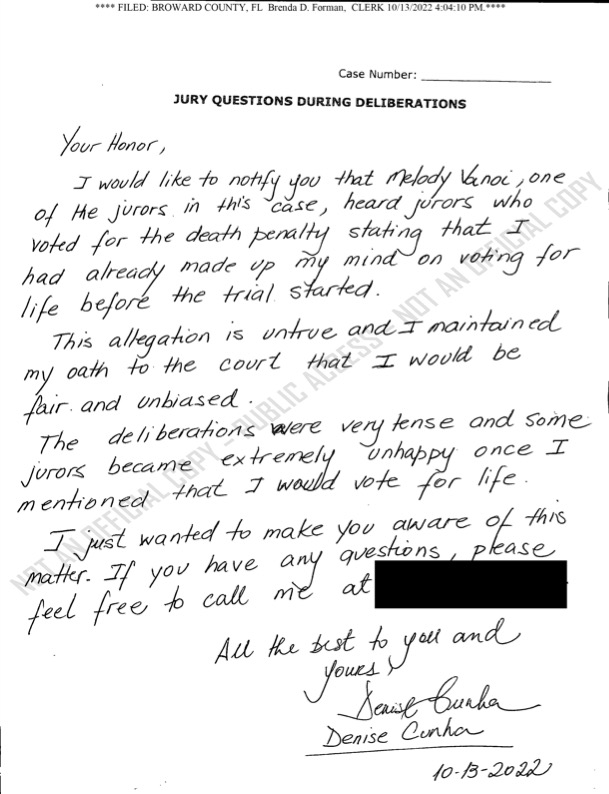 **** FILED: BROWARD COUNTY, FL Brenda D. Forman, CLERK 10/13/2022 4:04:10 PM.****
Case Number:
JURY QUESTIONS DURING DELIBERATIONS
Your Honor,
I would like to notify you that Melody Vanoi, one
of the jurors in this case, heard jurors who
voted for the death penalty stating that I
had already made up my mind on voting for
life before the trial started.
This allegation is untrue and I maintained
my oath to the court that I would be
fair and unbiased.
The deliberations were very tense and some
jurors became extremely unhappy once I
mentioned that I would vote for life.
I just wanted to make you aware of this
matter. If you have any questions, please
feel free to call me at
All the best to you and
yours,
Denise Cunha
Denise Cunha
10-13-2022
NOT AN OFFICIAL COPY - PUBLIC ACCESS - NOT AN OFFICIAL COPY